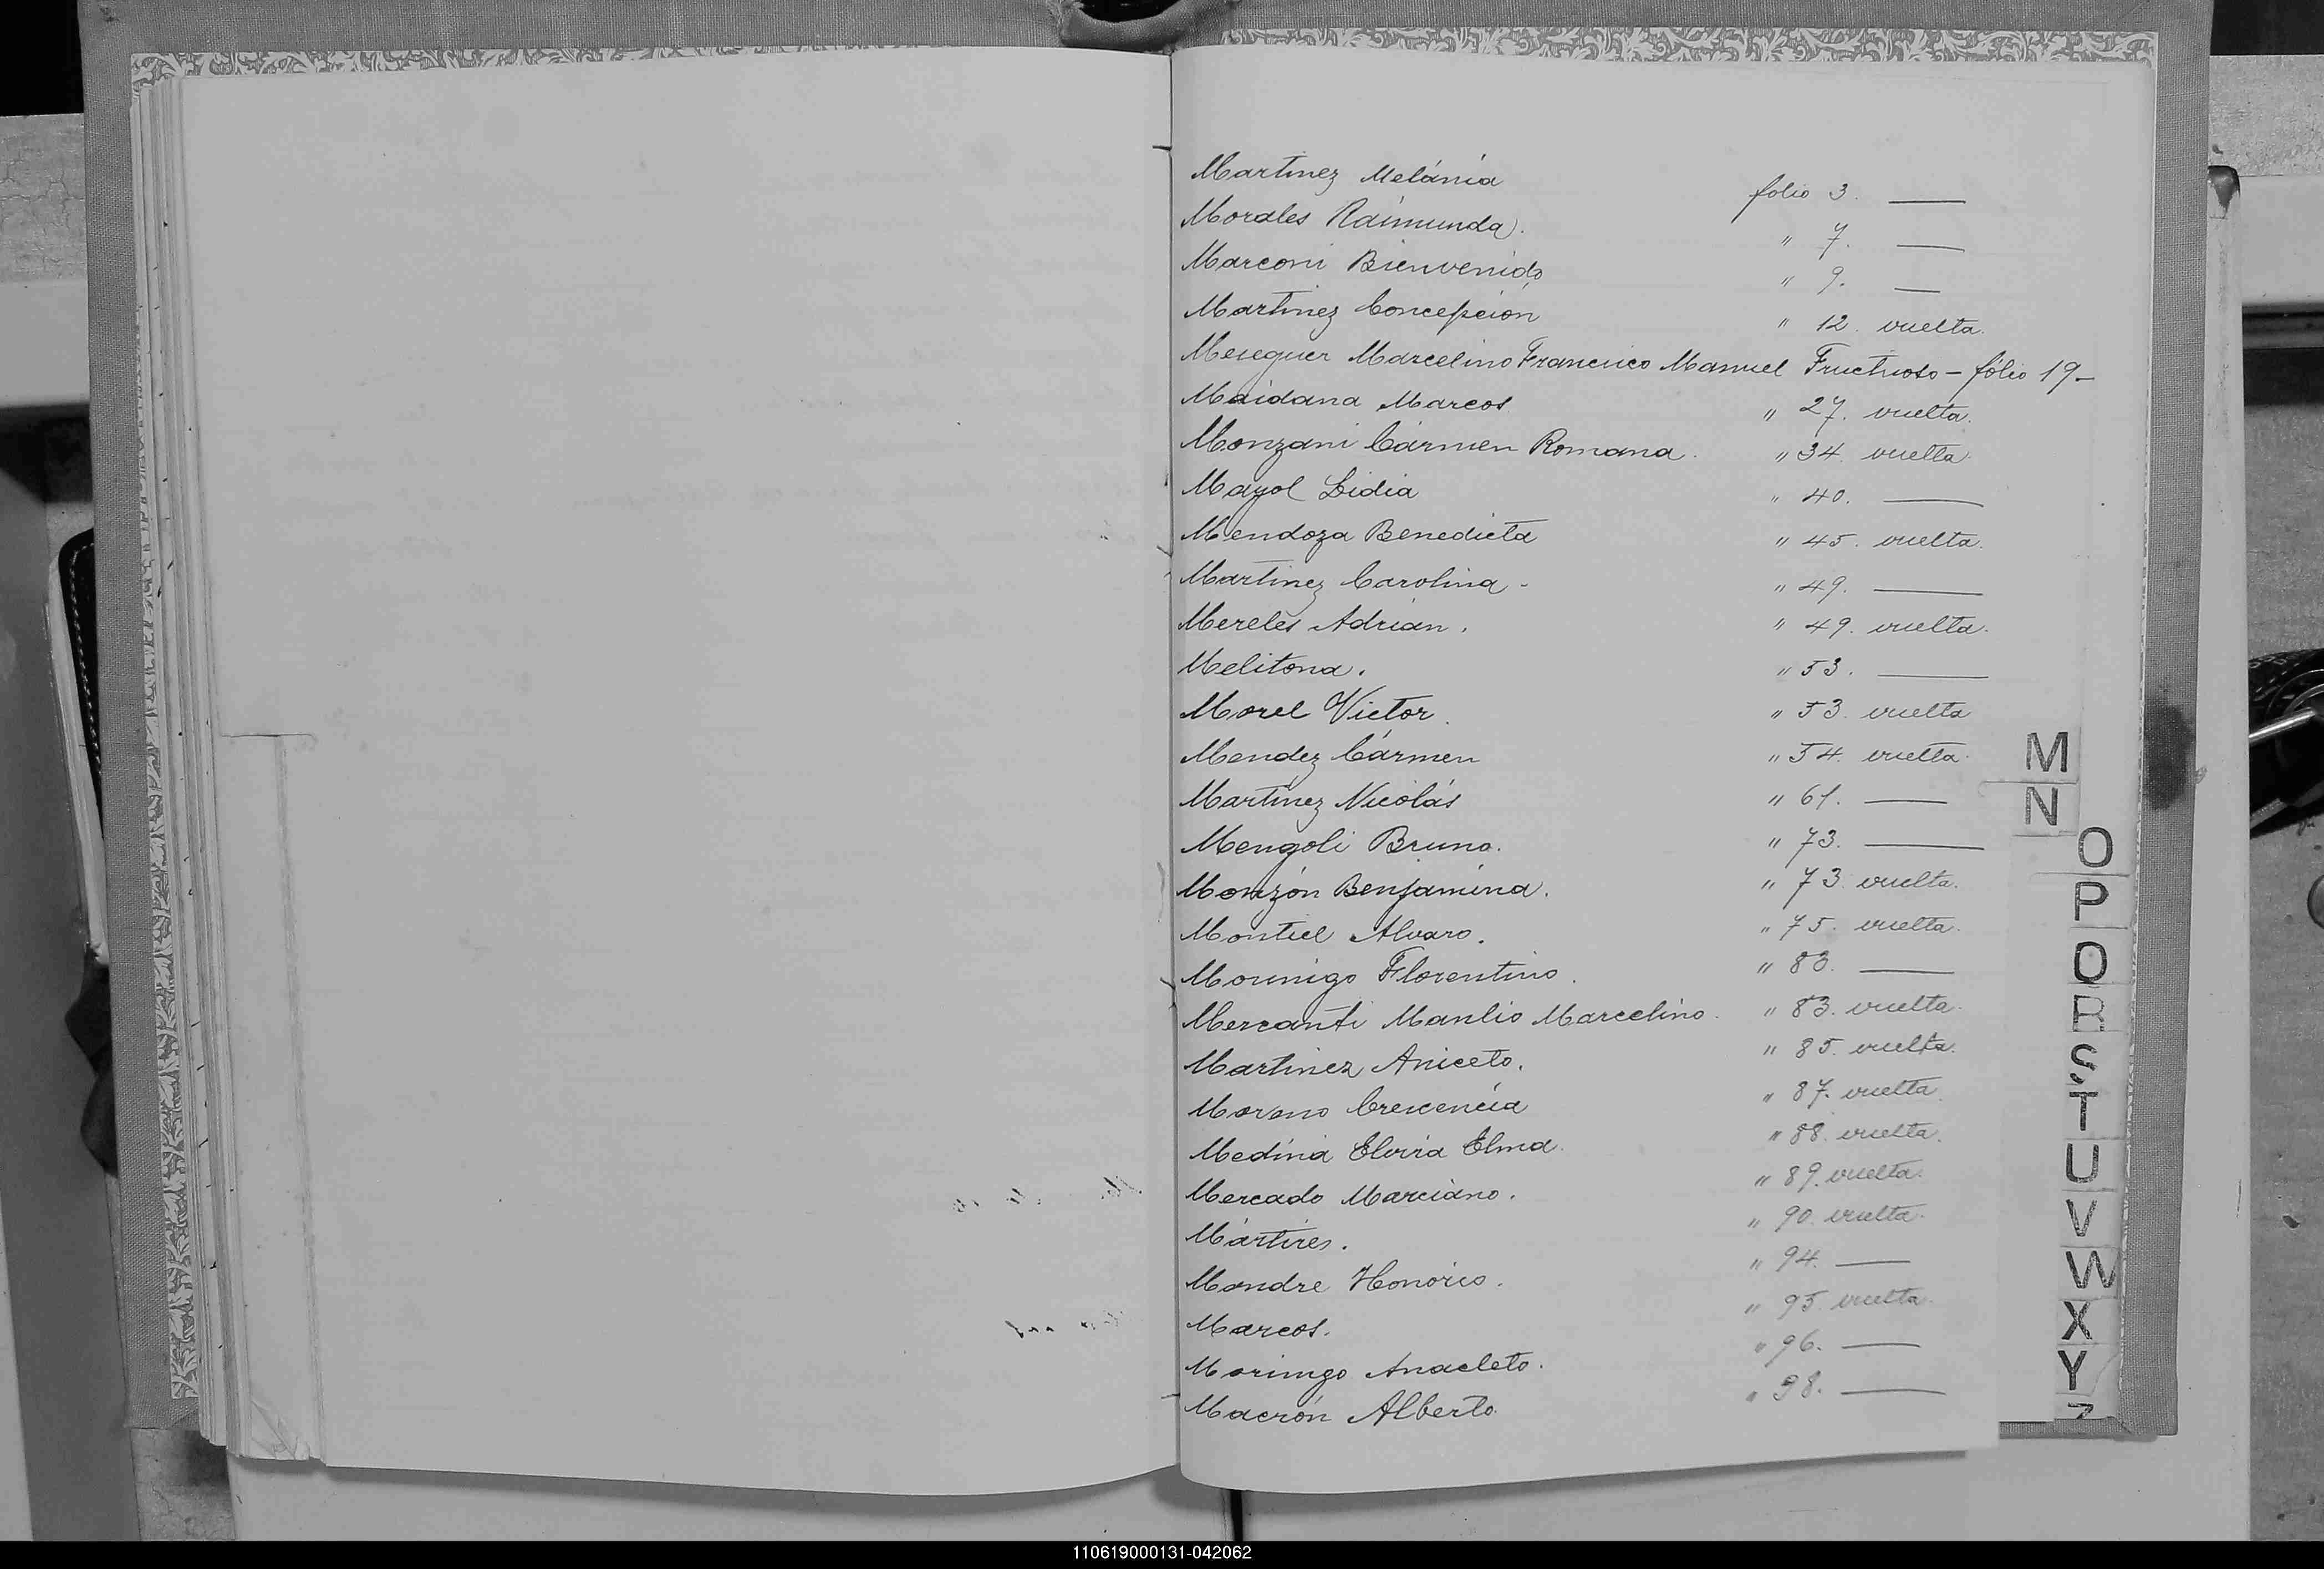 Martinez Melánia folio 3. —
Morales Raimunda. " 7. —
Marconi Bienvenido " 9. —
Martinez Concepción " 12. vuelta.
Meseguer Marcelino Francisco Manuel Fructuoso – fólio 19 –
Maidana Marcos " 27. vuelta.
Monzani Cármen Romana. " 34. vuelta.
Mayol Lidia " 40. —
Mendoza Benedicta " 45. vuelta.
Martinez Carolina - " 49. —
Mereles Adrian. " 49. vuelta.
Melitona. " 53. —
Morel Victor. " 53. vuelta
Mendez Cármen " 54. vuelta.
Martinez Nicolás " 61. —
Mengoli Bruno. " 73. —
Monzón Benjamina. " 73. vuelta.
Montiel Alvaro. " 75. vuelta.
Florentino. " 83. —
Mercanti Manlio Marcelino. " 83. vuelta.
Martinez Aniceto. " 85. vuelta.
Moreno Crescencia " 87. vuelta.
Medina Elvira Elma. " 88. vuelta.
Mercado Marciano. " 89. vuelta.
Mártires. " 90. vuelta.
Mandre Honorio. " 94. —
Marcos. " 95. vuelta.
Anacleto. " 96. —
Macrón Alberto. " 98. —
M
N
O
P
Q
R
S
T
U
V
W
X
Y
Z
110619000131-042062